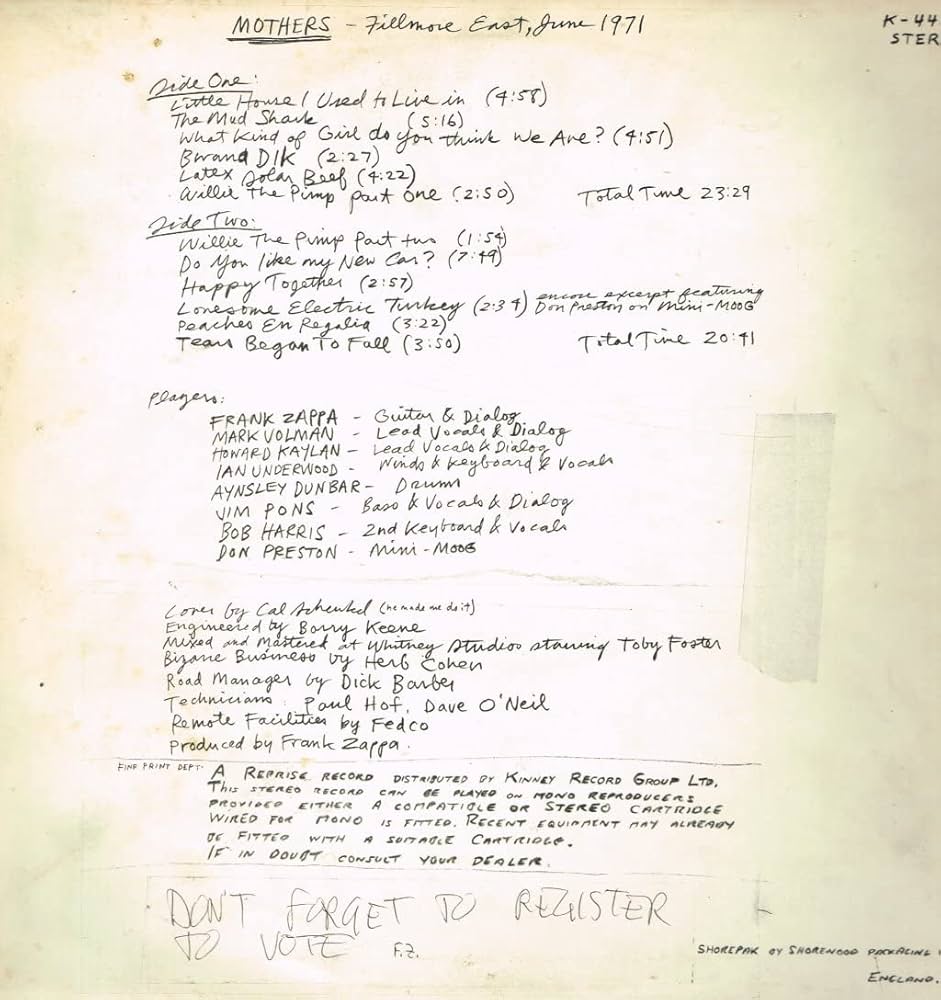 MOTHERS - Fillmore East, June 1971
K-44
STER
Side One:
Little House I Used to Live in (4:58)
The Mud Shark (5:16)
What Kind of Girl do you think We Are? (4:51)
Bwana DIK (2:27)
Latex Solar Beef (4:22)
Willie The Pimp part one (2:50) Total Time 23:29
Side Two:
Willie The Pimp Part two (1:54)
Do You like my New Car? (7:49)
Happy Together (2:57)
Lonesome Electric Turkey (2:34) encore excerpt featuring
Don Preston on Mini-MOOG
Peaches En Regalia (3:22)
Tears Began To Fall (3:50) Total Time 20:41
Players:
FRANK ZAPPA - Guitar & Dialog
MARK VOLMAN - Lead Vocals & Dialog
HOWARD KAYLAN - Lead Vocals & Dialog
IAN UNDERWOOD - Winds & Keyboard & Vocals
AYNSLEY DUNBAR - Drums
JIM PONS - Bass & Vocals & Dialog
BOB HARRIS - 2nd Keyboard & Vocals
DON PRESTON - Mini-MOOG
Cover by Cal Schenkel (he made me do it)
Engineered by Barry Keene
Mixed and Mastered at Whitney Studios starring Toby Foster
Bizarre Business by Herb Cohen
Road Manager by Dick Barber
Technicians: Paul Hof, Dave O'Neil
Remote Facilities by Fedco
Produced by Frank Zappa.
FINE PRINT DEPT.
A REPRISE RECORD DISTRIBUTED BY KINNEY RECORD GROUP LTD.
THIS STEREO RECORD CAN BE PLAYED ON MONO REPRODUCERS
PROVIDED EITHER A COMPATIBLE OR STEREO CARTRIDGE
WIRED FOR MONO IS FITTED. RECENT EQUIPMENT MAY ALREADY
BE FITTED WITH A SUITABLE CARTRIDGE.
IF IN DOUBT CONSULT YOUR DEALER.
DON'T FORGET TO REGISTER
TO VOTE F.Z.
SHOREPAK BY SHOREWOOD PACKAGING
ENGLAND.